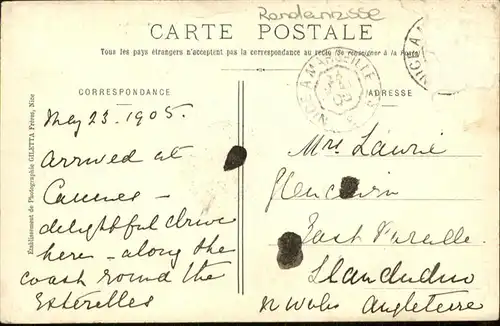 CARTE POSTALE
Tous les pays étrangers n'acceptent pas la correspondance au recto (Se renseigner à la Poste)
NICE A MARSEILLE
NICE A
CORRESPONDANCE
ADRESSE
Établissement de Photographie GILETTA Frères, Nice
May 23. 1905.
arrived at
Cannes –
delightful drive
here – along the
coast round the
Esterelles
Mrs Lawrie
Glencairn
East
Llandudno
N Wales Angleterre